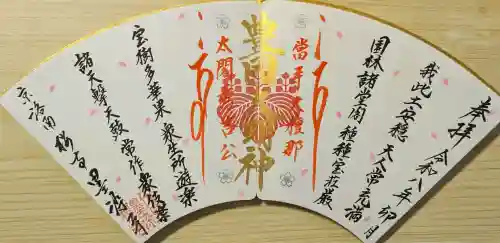 奉拝 令和八年 卯月
我此土安穏 天人常充満
園林諸堂閣 種種宝荘厳
當寺大檀那
豊国大明神
太閤秀吉公
宝樹多華果 衆生所遊楽
諸天撃天鼓 常作衆伎楽
京洛南 桜寺 墨染寺